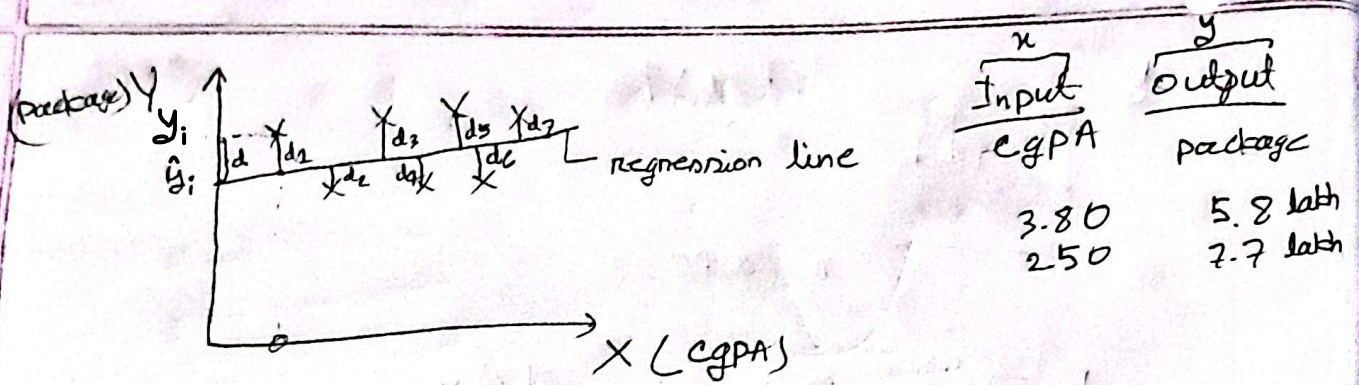 (package) Y
yᵢ
ŷᵢ
d
d1
d2
d3
d4
d5
d6
d7
regression line
X (cgpA)
x y
Input output
cgpA package
3.80 5.8 lakh
250 7.7 lakh